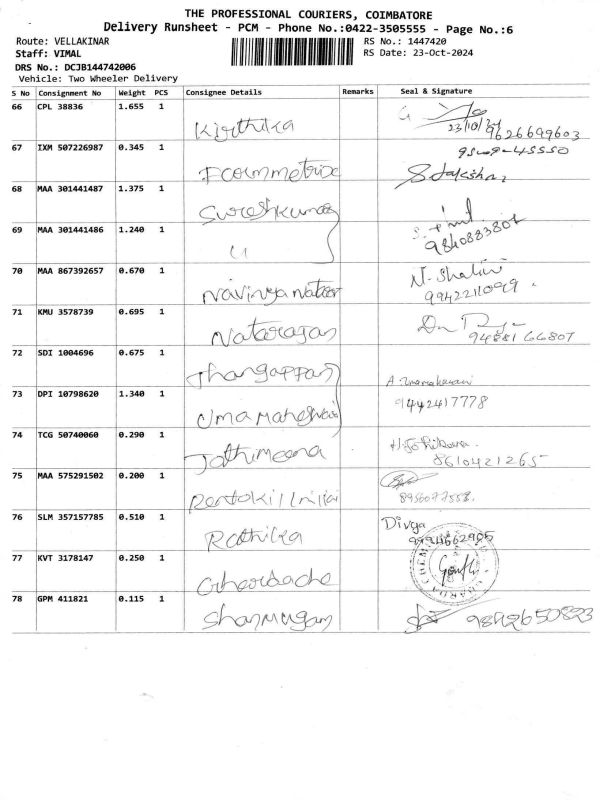 THE PROFESSIONAL COURIERS, COIMBATORE
Delivery Runsheet - PCM - Phone No.:0422-3505555 - Page No.:6
Route: VELLAKINAR RS No.: 1447420
Staff: VIMAL RS Date: 23-Oct-2024
DRS No.: DCJB144742006
Vehicle: Two Wheeler Delivery
S No Consignment No Weight PCS Consignee Details Remarks Seal & Signature
66 CPL 38836 1.655 1 Kirthika 23/10/24 9626699603
67 IXM 507226987 0.345 1
68 MAA 301441487 1.375 1 Sureshkumar
69 MAA 301441486 1.240 1 9840883804
70 MAA 867392657 0.670 1 N. Shalini 9942211099
71 KMU 3578739 0.695 1 Natarajan 9488166807
72 SDI 1004696 0.675 1 Thangappan
73 DPI 10798620 1.340 1 Uma Maheswari 9442417778
74 TCG 50740060 0.290 1 Jothimeena 8610421265
75 MAA 575291502 0.200 1 8956077558.
76 SLM 357157785 0.510 1 Rathika Divya 9994662905
77 KVT 3178147 0.250 1
78 GPM 411821 0.115 1 Shanmugam 9842650823